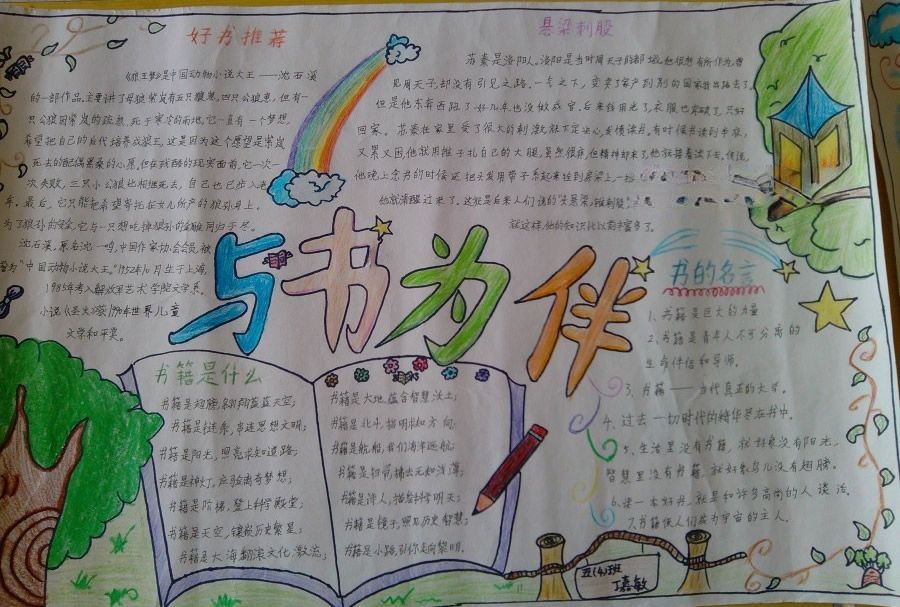 好书推荐
《狼王梦》是中国动物小说大王——沈石溪
的一部作品,主要讲了母狼紫岚有五只狼崽,四只公狼崽,但有一
只公狼因紫岚的疏忽,死于寒冷的雨地,它一直有一个梦想,
希望把自己的后代培养成狼王,这是因为这个愿望是紫岚
死去的配偶黑桑的心愿,但在残酷的现实面前,它一次一
次失败,三只小公狼也相继死去,自己也已步入老
年,最后,它只能把希望寄托在女儿所产的狼孙身上,
为了狼孙的安全,它与一只想吃掉狼孙的金雕同归于尽。
沈石溪,原名沈一鸣,中国作家协会会员,被
誉为"中国动物小说大王。"1952年10月生于上海,
1985年考入解放军艺术学院文学系。
小说《圣火》获1990年世界儿童
文学和平奖。
悬梁刺股
苏秦是洛阳人,洛阳是当时周天子的都城,他很想有所作为,曾
见周天子,却没有引见之路,一气之下,变卖了家产到别的国家
但是他东奔西跑了好几年也没做成官,后来钱用光了,衣服也穿破了,只好
回家。苏秦在家里受了很大的刺激,就下定决心,发愤读书,有时候书读到半夜,
又累又困,他就用锥子扎自己的大腿,虽然很疼,但精神却来了,他就接着读下去,传说,
他晚上念书的时候还把头发用带子系起来拴到房梁上,一
他就清醒过来了。这就是后来人们说的"头悬梁,锥刺股"
就这样,他的知识比以前丰富多了。
与书为伴
书的名言
1.书籍是巨大的力量
2.书籍是青年人不可分离的
生命伴侣和导师。
3.书籍——当代真正的大学。
4.过去一切时代的精华尽在书中。
5.生活里没有书籍,就好象没有阳光,
智慧里没有书籍,就好象鸟儿没有翅膀。
6.读一本好书,就是和许多高尚的人谈话。
7.书籍使人们成为宇宙的主人。
书籍是什么
书籍是翅膀,翱翔蓝蓝天空;
书籍是桂条,串连思想文明;
书籍是阳光,照亮求知道路;
书籍是神灯,应验离奇梦想;
书籍是阶梯,登上科学殿堂;
书籍是天空,镶嵌历史繁星;
书籍是大海,翻滚文化激流;
书籍是大地,蕴含智慧沃土;
书籍是北斗,指明求知方向;
书籍是航船,我们海洋远航;
书籍是扫帚,扫出无知浅薄;
书籍是诗人,描绘科学明天;
书籍是镜子,照见历史智慧;
书籍是小路,引你走向黎明.
五(4)班
丁嘉敏